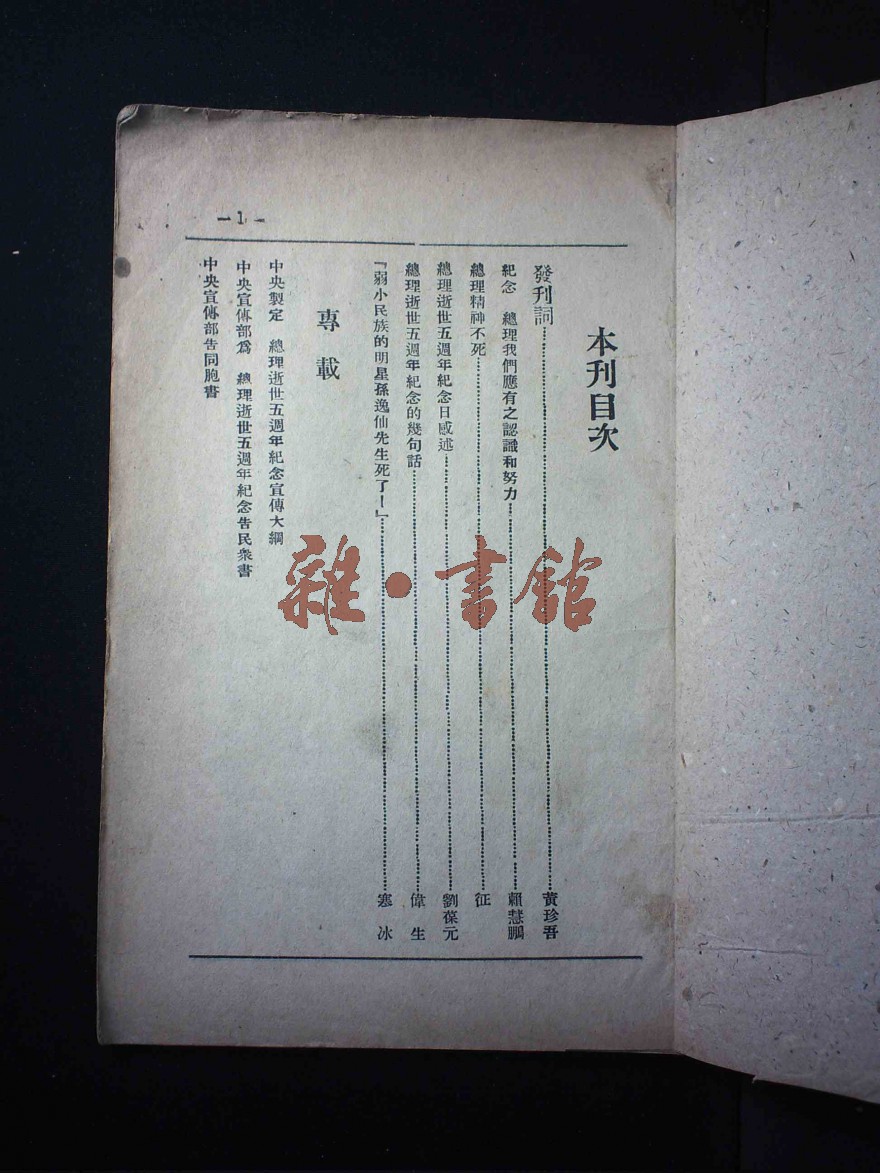 —1—
本刊目次
發刊詞……黃珍吾
紀念　總理我們應有之認識和努力……賴慧鵬
總理精神不死……征
總理逝世五週年紀念日感述……劉葆元
總理逝世五週年紀念的幾句話……偉生
『弱小民族的明星孫逸仙先生死了！』……寒冰
專載
中央製定　總理逝世五週年紀念宣傳大綱
中央宣傳部爲　總理逝世五週年紀念告民衆書
中央宣傳部告同胞書
雜·書館